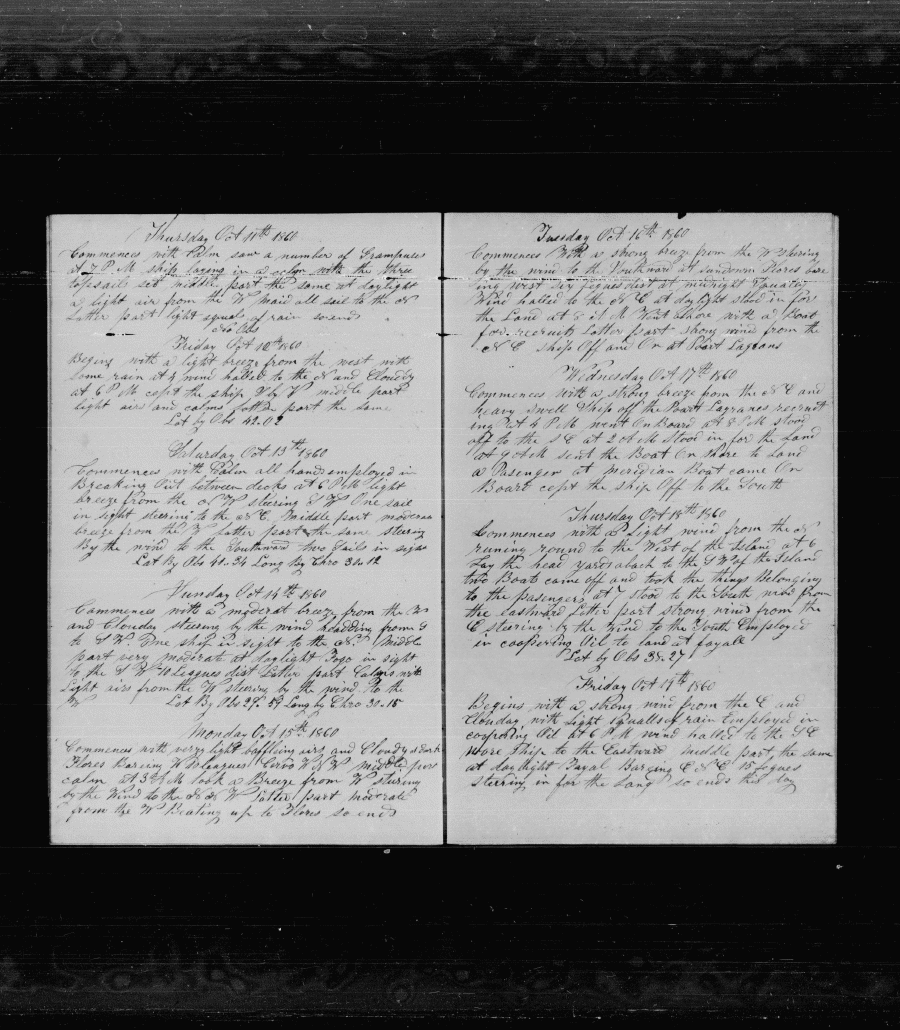 Thursday Oct 11th 1860
Commences with Calm saw a number of Grampuses
at 7 P M ship laying in a calm with the three
topsails set middle part the same at daylight
a light air from the W maid all sail to the N
Latter part light squals of rain so ends
No Obs
Friday Oct 12th 1860
Begins with a light breez from the west with
some rain at 4 wind halled to the N and Cloudy
at 6 P M the ship middle part
light airs and calms latter part the same
Lat by Obs 42.02
Saturday Oct 13th 1860
Commences with Calm all hands employed in
Breaking Out between decks at 6 P M light
breeze from the N W steering S W One sail
in sight steering to the N E Middle part moderate
breeze from the W latter part the same steering
By the wind to the Southward two Sails in sight
Lat By Obs 41-34 Long By Chro 30.12
Sunday Oct 14th 1860
Commences with a moderat breeze from the W
and Clouday steering by the wind headding from S
to S W. One ship in sight to the N. Middle
part very moderate at daylight in sight
to the S W 10 Leagues dist Latter part Calms with
Light airs from the W steering by the wind to the
W Lat By Obs 39.59 Long by Chro 30-15
Monday Oct 15th 1860
Commences with very light baffling airs and Cloudy at dark
Flores Baring W leagues W middle part
calm at 3 A M took a Breeze from W stering
by the Wind to the N N W latter part moderate
from the W Beating up to Flores so ends
Tuesday Oct 16th 1860
Commences With a strong breeze from the W Steering
by the wind to the Southward at sundown Flores bare
ing west six legues dist at midnight
Wind halled to the N E at daylight stood in for
the Land at 8 A M Went ashore with a Boat
for recruits Latter part strong wind from the
N E ship Off and On at Poart Lagrans
Wednesday Oct 17th 1860
Commences with a strong breeze from the N E and
heavy Swell Ship off the Poart Lagranes recruit
ing At 4 P M went On Board at 8 P M stood
off to the S E at 2 A M Stood in for the Land
at 9 A M sent the Boat On Shore to Land
a Pasenger at meridian Boat came On
Boart the ship Off to the South
Thursday Oct 18th 1860
Commences with a Light wind from the N
runing round to the West of the Island at 6
Lay the head yards aback to the S W of the Island
two Boats came off and took the things Belonging
to the pasengers at 7 stood to the South wind from
the Eastward Latter part strong wind from the
E steering by the Wind to the South Employed
in coopering Oil to land at fayall
Lat by Obs 38.27
Friday Oct 19th 1860
Begins with a strong wind from the E and
Clouday with Light squalls of rain Employed in
coopring Oil at 6 P M wind halled to the S E
ship to the Eastward middle part the same
at daylight Fayal Baring E N E 15 Legues
steering in for the Lang so ends this day